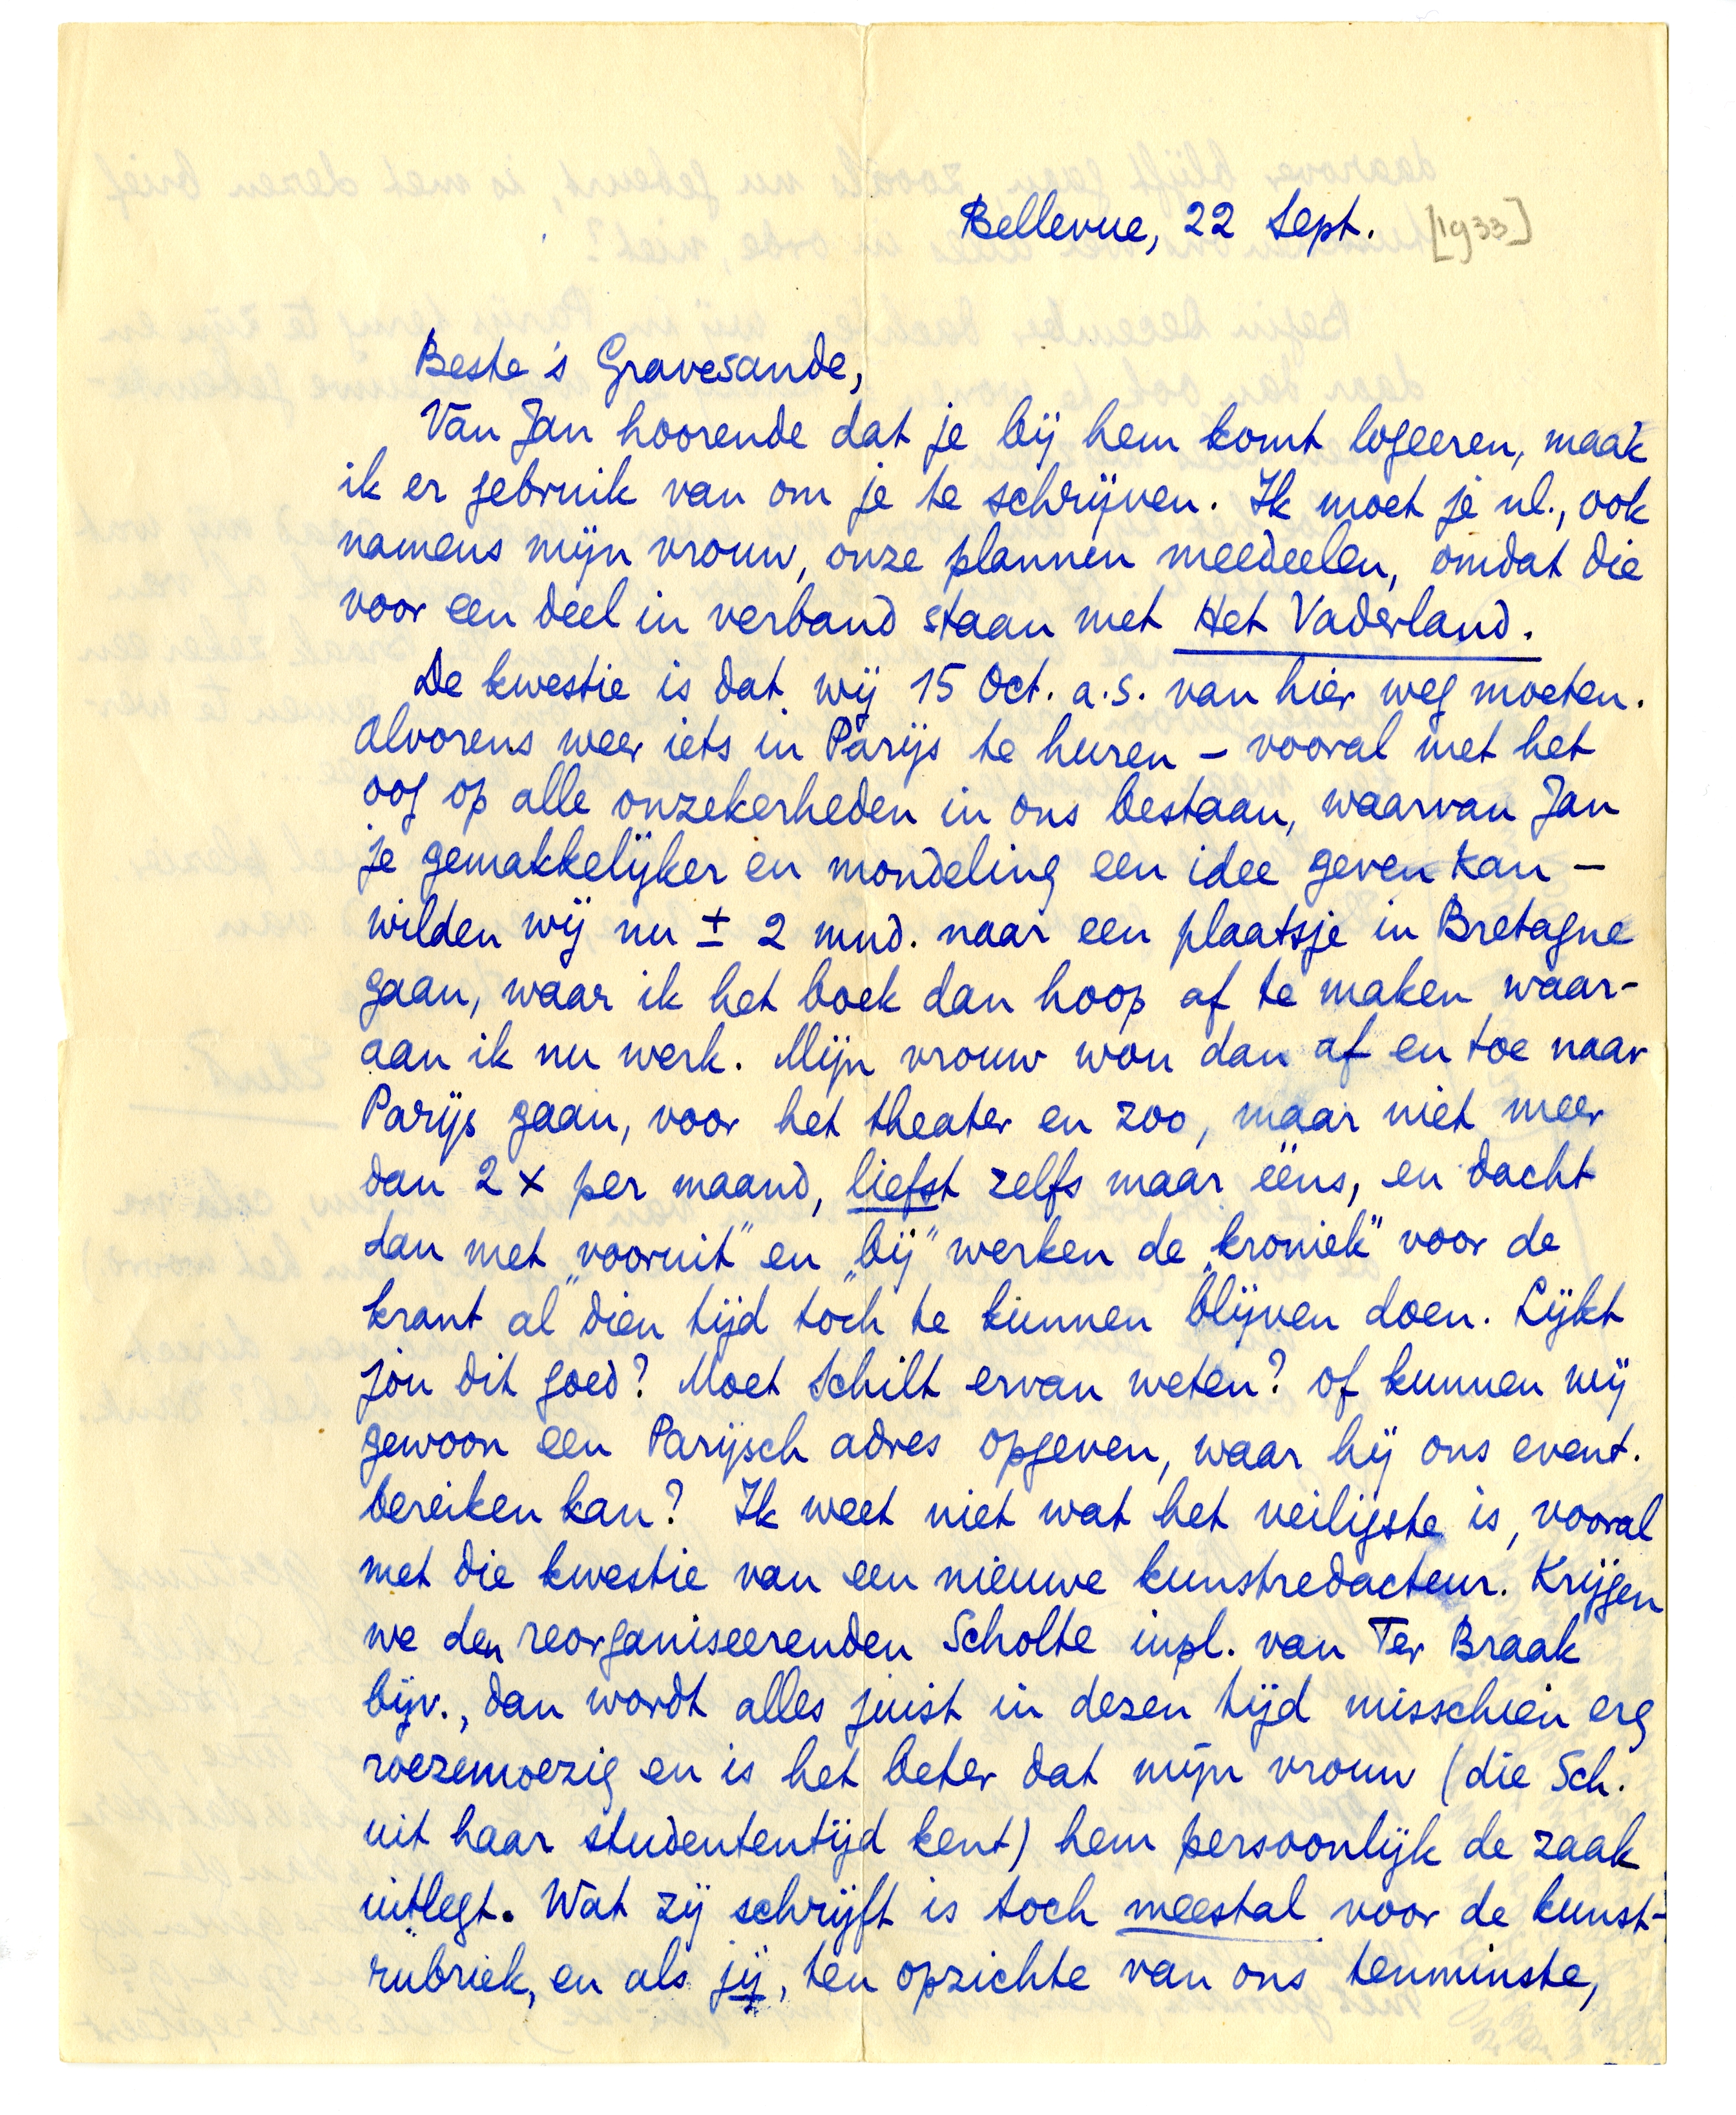 Bellevue, 22 Sept. [1933]
Beste 's Gravesande,
Van Jan hoorende dat je bij hem komt logeeren, maak
ik er gebruik van om je te schrijven. Ik moet je nl., ook
namens mijn vrouw, onze plannen meedeelen, omdat die
voor een deel in verband staan met Het Vaderland.
De kwestie is dat wij 15 Oct. a.s. van hier weg moeten.
Alvorens weer iets in Parijs te huren – vooral met het
oog op alle onzekerheden in ons bestaan, waarvan Jan
je gemakkelijker en mondeling een idee geven kan –
wilden wij nu ± 2 mnd. naar een plaatsje in Bretagne
gaan, waar ik het boek dan hoop af te maken waar-
aan ik nu werk. Mijn vrouw wou dan af en toe naar
Parijs gaan, voor het theater en zoo, maar niet meer
dan 2 x per maand, liefst zelfs maar ééns, en dacht
dan met „vooruit” en „bij” werken de „kroniek” voor de
krant al dien tijd toch te kunnen blijven doen. Lijkt
jou dit goed? Moet Schilt ervan weten? of kunnen wij
gewoon een Parijsch adres opgeven, waar hij ons event.
bereiken kan? Ik weet niet wat het veiligste is, vooral
met die kwestie van een nieuwe kunstredacteur. Krijgen
we den reorganiseerenden Scholte inpl. van Ter Braak
bijv., dan wordt alles juist in dezen tijd misschien erg
roezemoezig en is het beter dat mijn vrouw (die Sch.
uit haar studententijd kent) hem persoonlijk de zaak
uitlegt. Wat zij schrijft is toch meestal voor de kunst-
rubriek, en als jij, ten opzichte van ons tenminste,